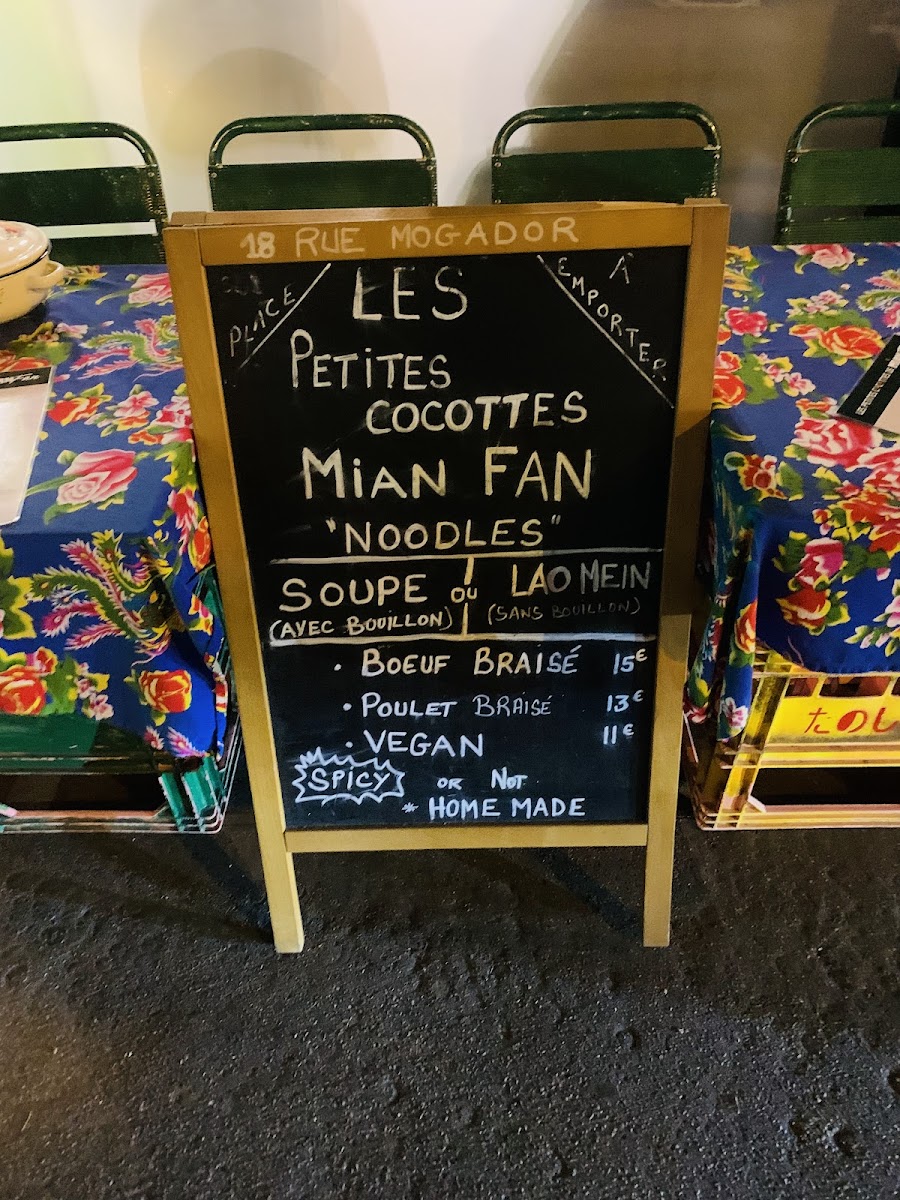 18 RUE MOGADOR
PLACE
À EMPORTER
LES
PETITES
COCOTTES
MIAN FAN
"NOODLES"
SOUPE OU LAO MEIN
(AVEC BOUILLON) (SANS BOUILLON)
• BOEUF BRAISÉ 15€
• POULET BRAISÉ 13€
• VEGAN 11€
SPICY OR NOT
* HOME MADE
たのし